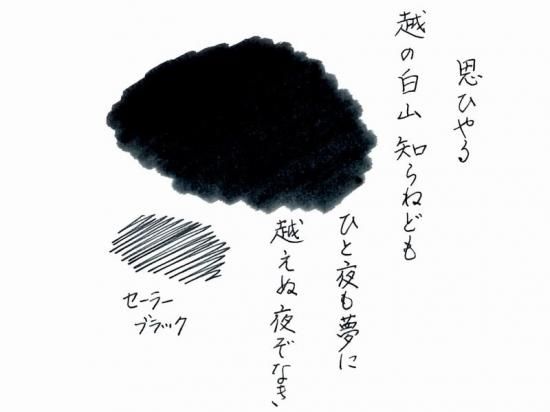 思ひやる
越の白山 知らねども
ひと夜も夢に
越えぬ夜ぞなき
セーラー
ブラック